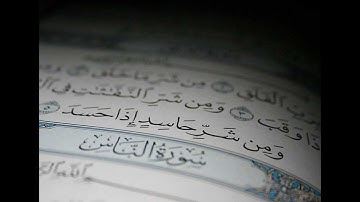 الْفَلَقِ ۝١ مِن شَرِّ مَا خَلَقَ ۝٢
ذَا وَقَبَ ۝٣ وَمِن شَرِّ النَّفَّٰثَٰتِ فِي الْ
وَمِن شَرِّ حَاسِدٍ إِذَا حَسَدَ ۝٥
سُورَةُ النَّاسِ